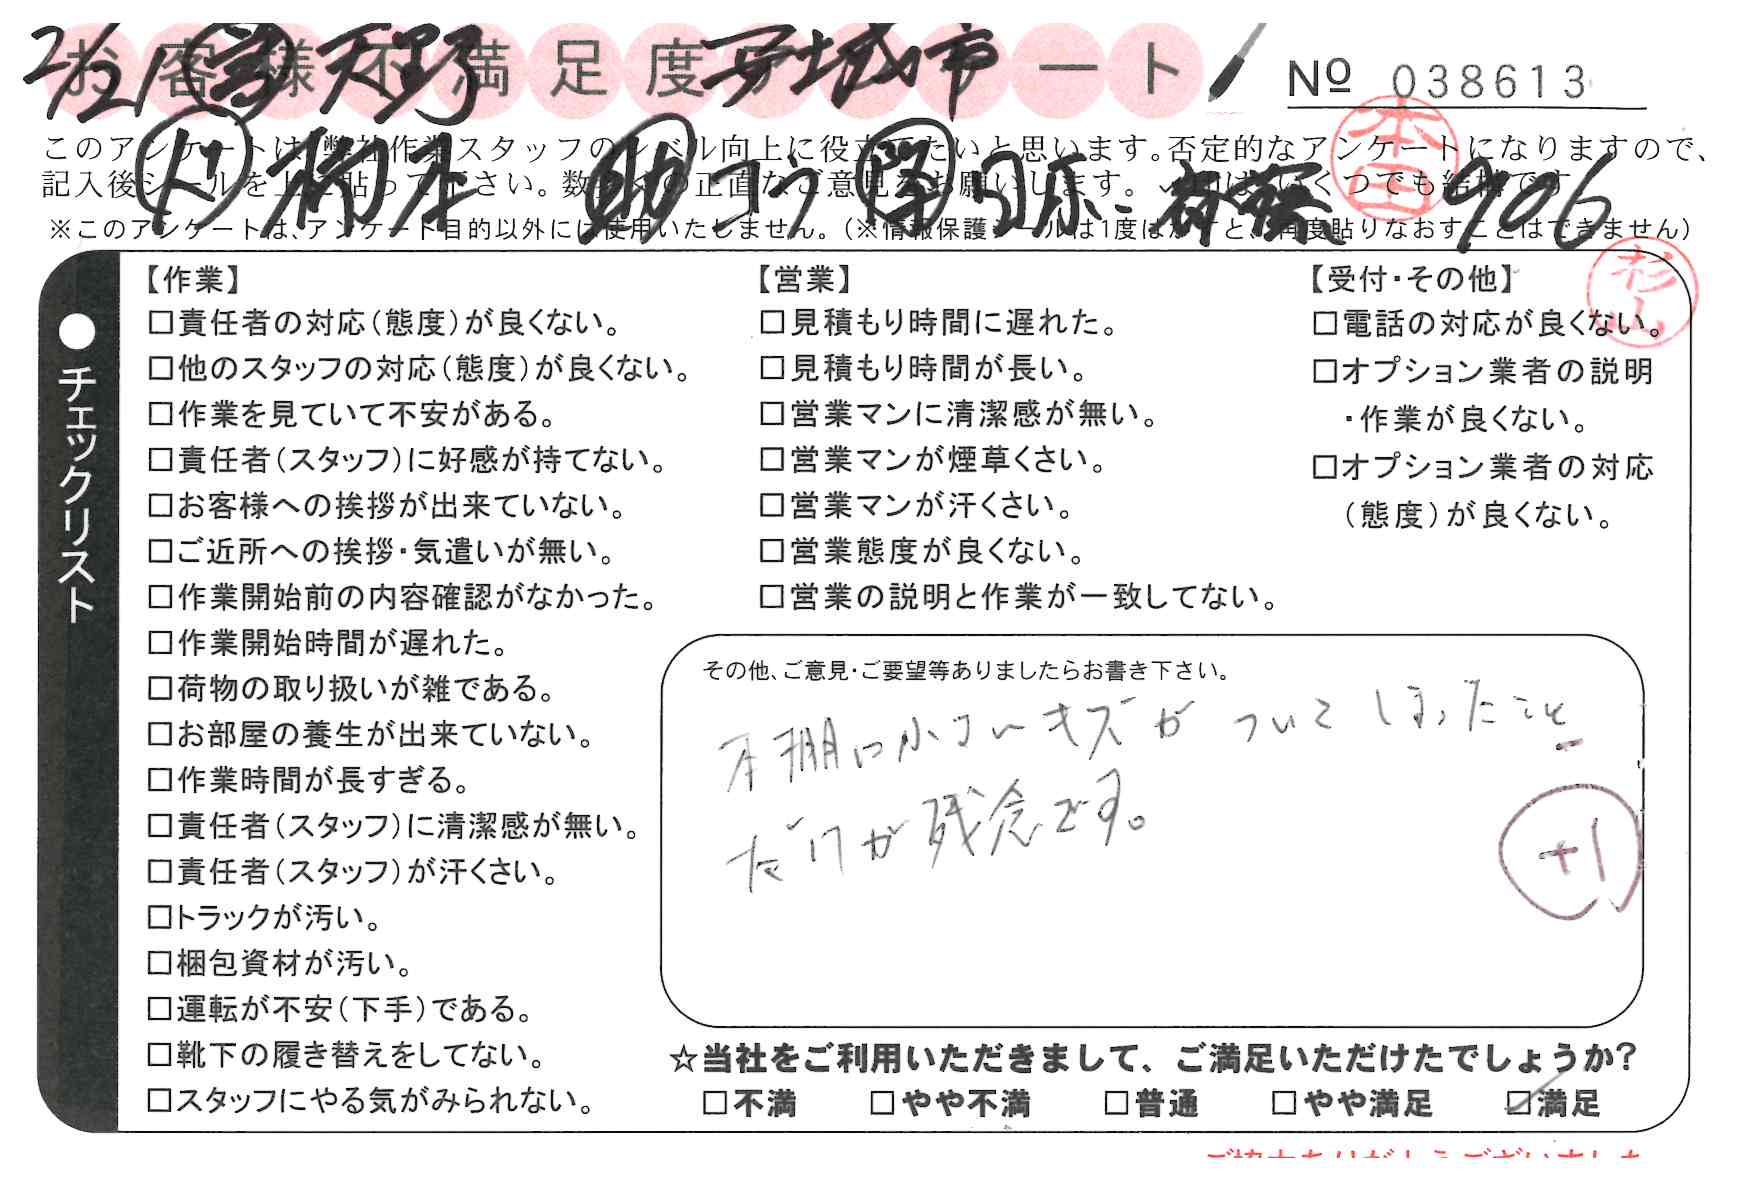 お客様不満足度アンケート
2/21 天野 安城市
No 038613
このアンケートは、弊社作業スタッフのレベル向上に役立てたいと思います。否定的なアンケートになりますので、
本田
記入後シールを上に貼って下さい。数多くの正直なご意見をお願いします。
柳本 助 コウ 906
※このアンケートは、アンケート目的以外には使用いたしません。(※情報保護シールは1度はがすと、再度貼りなおすことはできません)
杉山
●チェックリスト
【作業】
□責任者の対応(態度)が良くない。
□他のスタッフの対応(態度)が良くない。
□作業を見ていて不安がある。
□責任者(スタッフ)に好感が持てない。
□お客様への挨拶が出来ていない。
□ご近所への挨拶・気遣いが無い。
□作業開始前の内容確認がなかった。
□作業開始時間が遅れた。
□荷物の取り扱いが雑である。
□お部屋の養生が出来ていない。
□作業時間が長すぎる。
□責任者(スタッフ)に清潔感が無い。
□責任者(スタッフ)が汗くさい。
□トラックが汚い。
□梱包資材が汚い。
□運転が不安(下手)である。
□靴下の履き替えをしてない。
□スタッフにやる気がみられない。
【営業】
□見積もり時間に遅れた。
□見積もり時間が長い。
□営業マンに清潔感が無い。
□営業マンが煙草くさい。
□営業マンが汗くさい。
□営業態度が良くない。
□営業の説明と作業が一致してない。
【受付・その他】
□電話の対応が良くない。
□オプション業者の説明
・作業が良くない。
□オプション業者の対応
(態度)が良くない。
その他、ご意見・ご要望等ありましたらお書き下さい。
本棚に小さいキズが ついてしまったこと
だけが残念です。
+1
☆当社をご利用いただきまして、ご満足いただけたでしょうか?
□不満 □やや不満 □普通 □やや満足 ☑満足
ご協力ありがとうございました